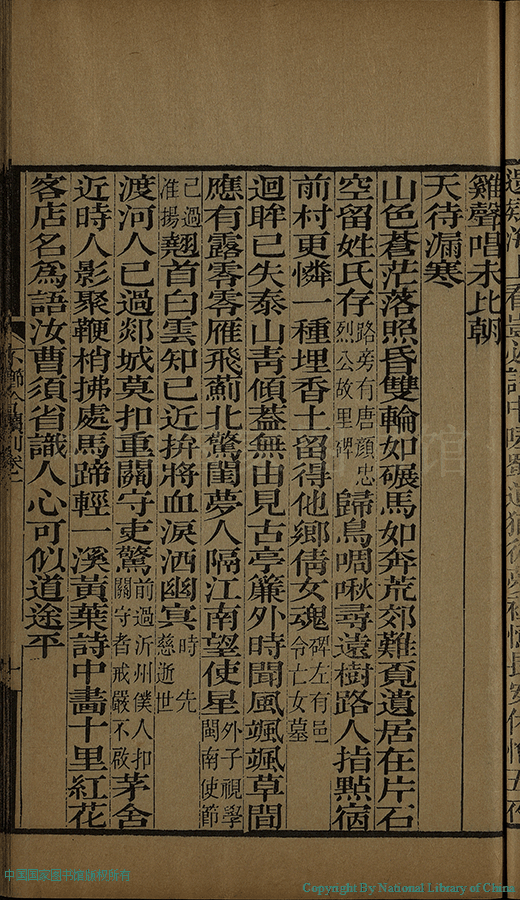 雞聲唱未比朝
天待漏寒
山色蒼茫落照昏雙輪如碾馬如奔荒郊難覔遺居在片石
空留姓氏存路旁有唐顏忠烈公故里碑歸鳥啁啾尋遠樹路人指點宿
前村更憐一種埋香土留得他鄉倩女魂碑左有邑令亡女墓
迴眸已失泰山青傾蓋無由見古亭簾外時聞風颯颯草間
應有露零零雁飛薊北驚閨夢人隔江南望使星外子視學閩南使節
已過淮揚翹首白雲知已近拚將血淚洒幽冥時先慈逝世
渡河人已過郯城莫扣重關守吏驚前過沂州僕人扣關守者戒嚴不啟茅舍
近時人影聚鞭梢拂處馬蹄輕一溪黃葉詩中畵十里紅花
客店名為語汝曹須省識人心可似道途平
中国国家图书馆版权所有
Copyright By National Library of China